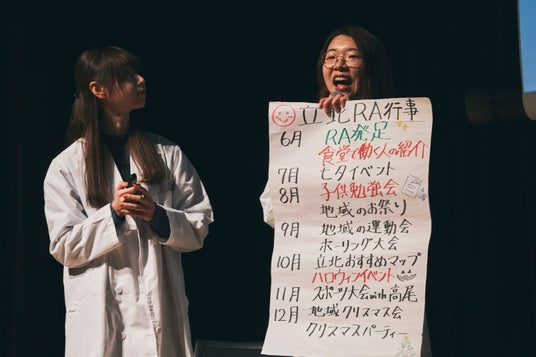 立北RA行事
6月 RA発足
食堂で働く人の紹介
7月 七夕イベント
8月 子供勉強会
地域のお祭り
9月 地域の運動会
ボーリング大会
10月 立北おすすめマップ
ハロウィンイベント
11月 スポーツ大会with高尾
12月 地域クリスマス会
クリスマスパーティー